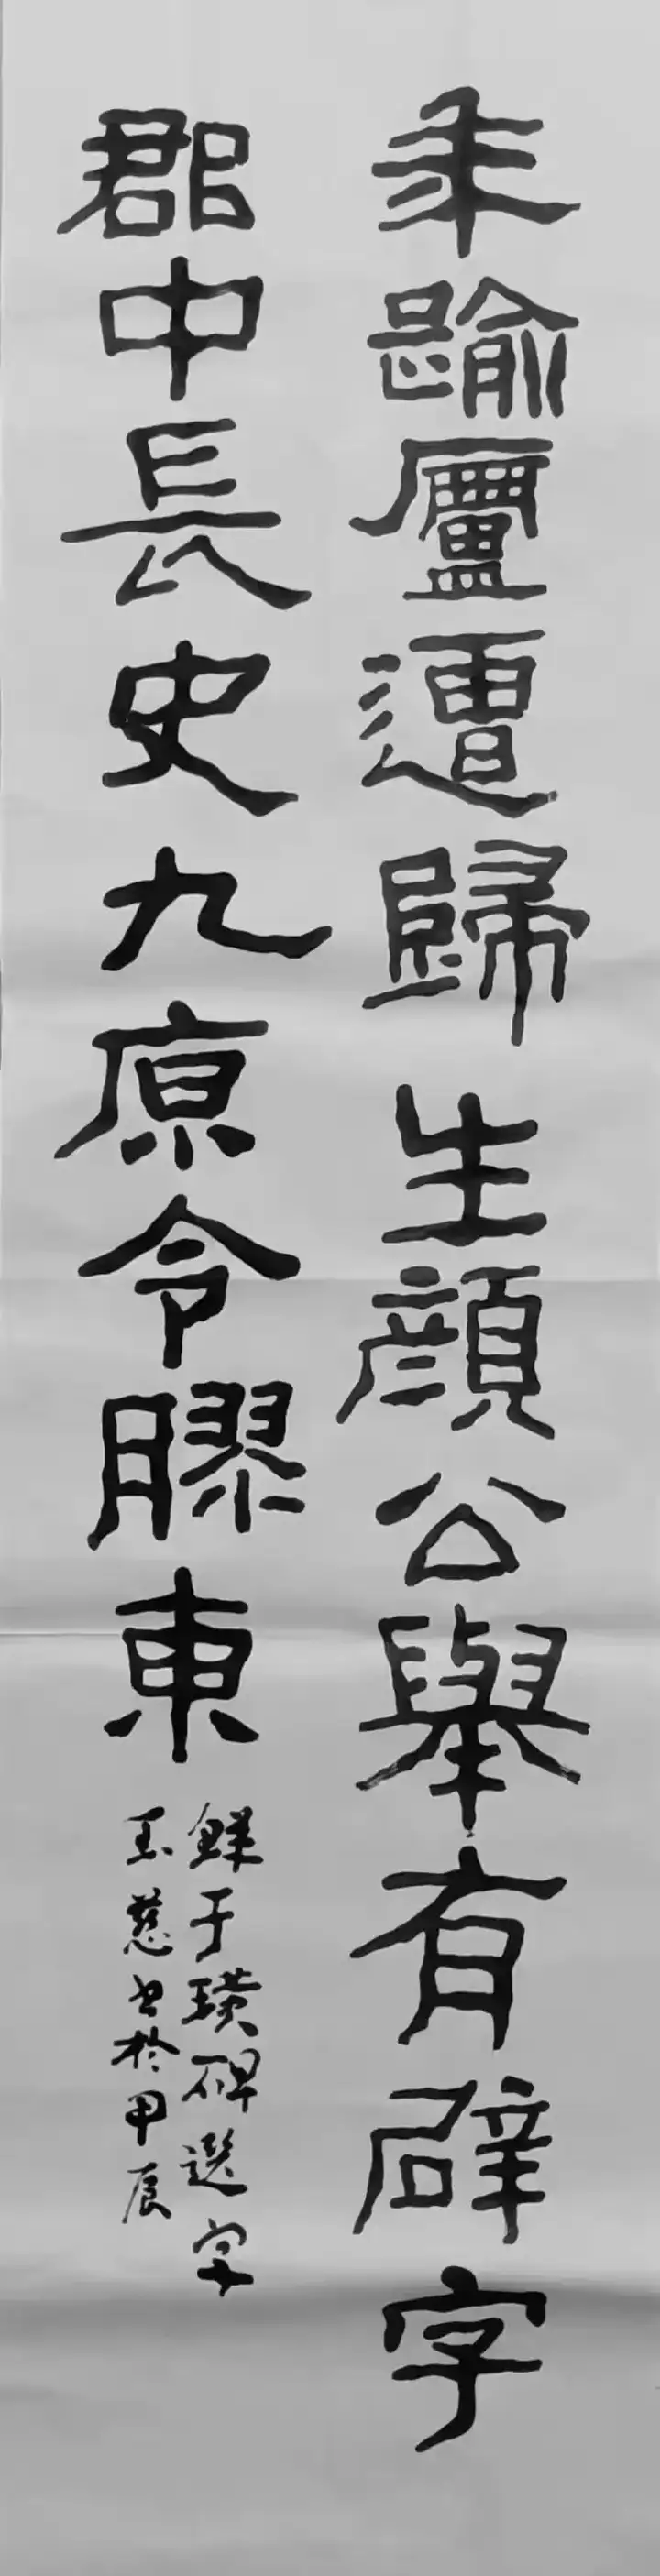 年踰廬遭歸生顏公舉有辟字
郡中長史九原令膠東
鮮于璜碑選字
玉慈书於甲辰